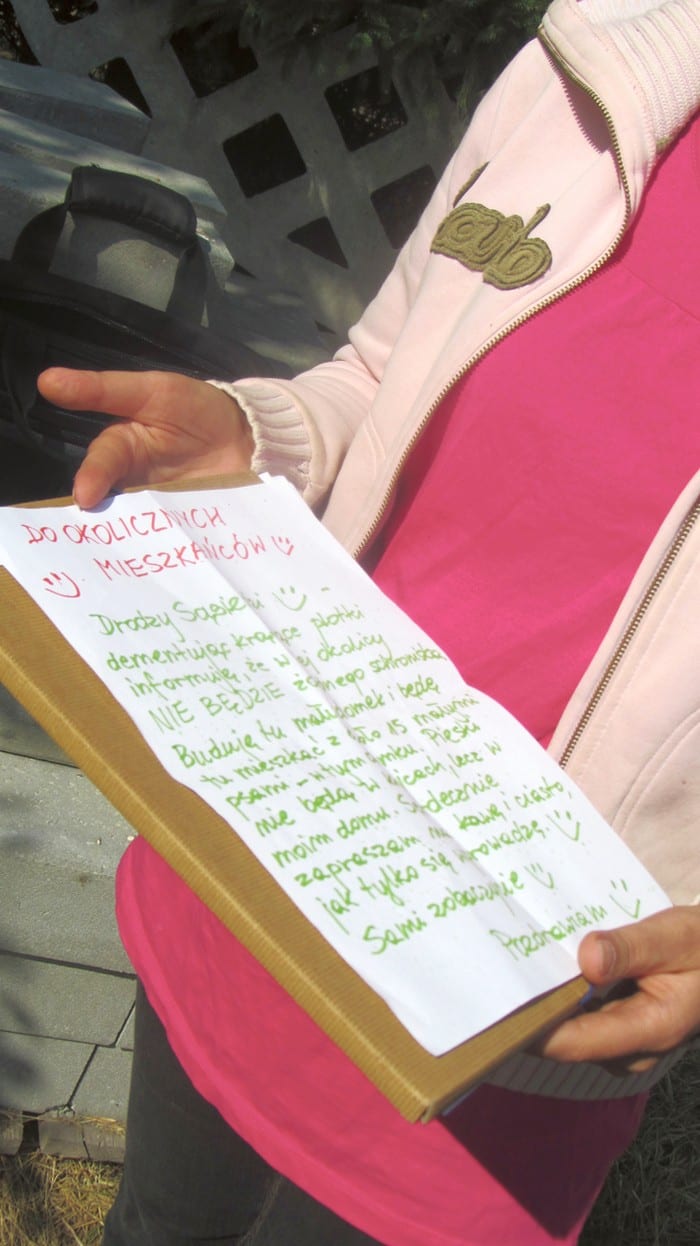 DO OKOLICZNYCH
MIESZKAŃCÓW
Drodzy Sąsiedzi
dementując krążące plotki
informuję, że w tej okolicy
NIE BĘDZIE żadnego schroniska.
Buduję tu mały domek i będę
tu mieszkać z 15 małymi
psami - w tym Pieski
nie będą w kojcach, lecz w
moim domu. Serdecznie
zapraszam na kawę i ciasto,
jak tylko się wprowadzę.
Sami zobaczycie
Pozdrawiam